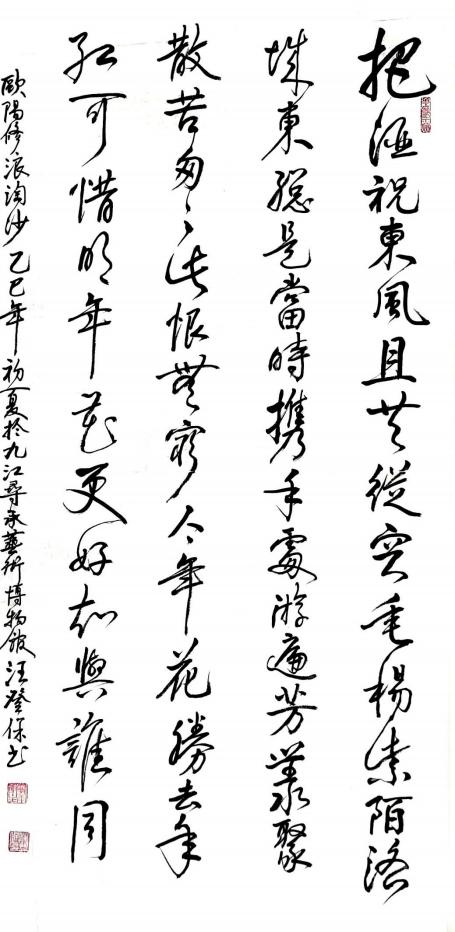 把酒祝東風且共從容垂楊紫陌洛
城東總是當時攜手處游遍芳叢聚
散苦匆々此恨無窮今年花勝去年
紅可惜明年花更好知與誰同
歐陽修浪淘沙乙巳年初夏於九江尋承藝術博物館汪登保書